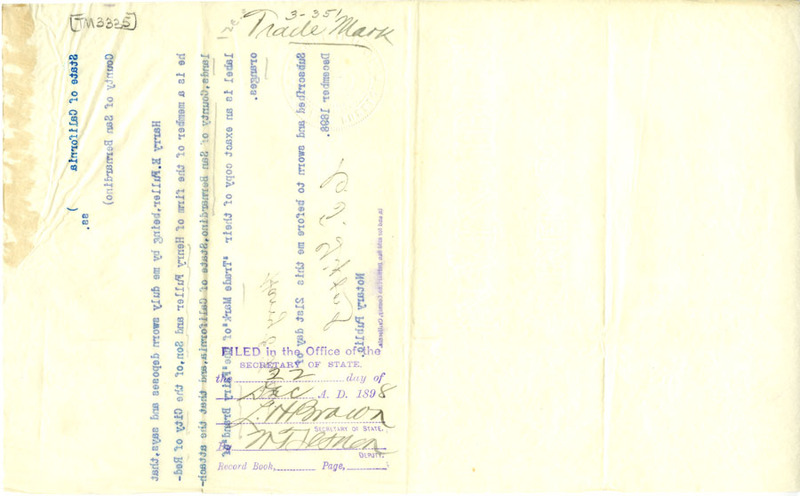 TM3325
3-351
Trade Mark
FILED in the Office of the
SECRETARY OF STATE.
the 22 day of
Dec A. D. 1898
L. H. Brown
SECRETARY OF STATE.
By
DEPUTY.
Record Book, Page,
State of California )
ss.
County of San Bernardino)
Harry E. Fuller, being by me duly sworn deposes and says, that
he is a member of the firm of Henry Fuller and Son, of the City of Red-
lands, County of San Bernardino, State of California, and that the attach-
label is an exact copy of their "Trade Mark" of the "Fairy Brand" of
oranges.
Subscribed and sworn to before me this 21st day of
December 1898.
Notary Public